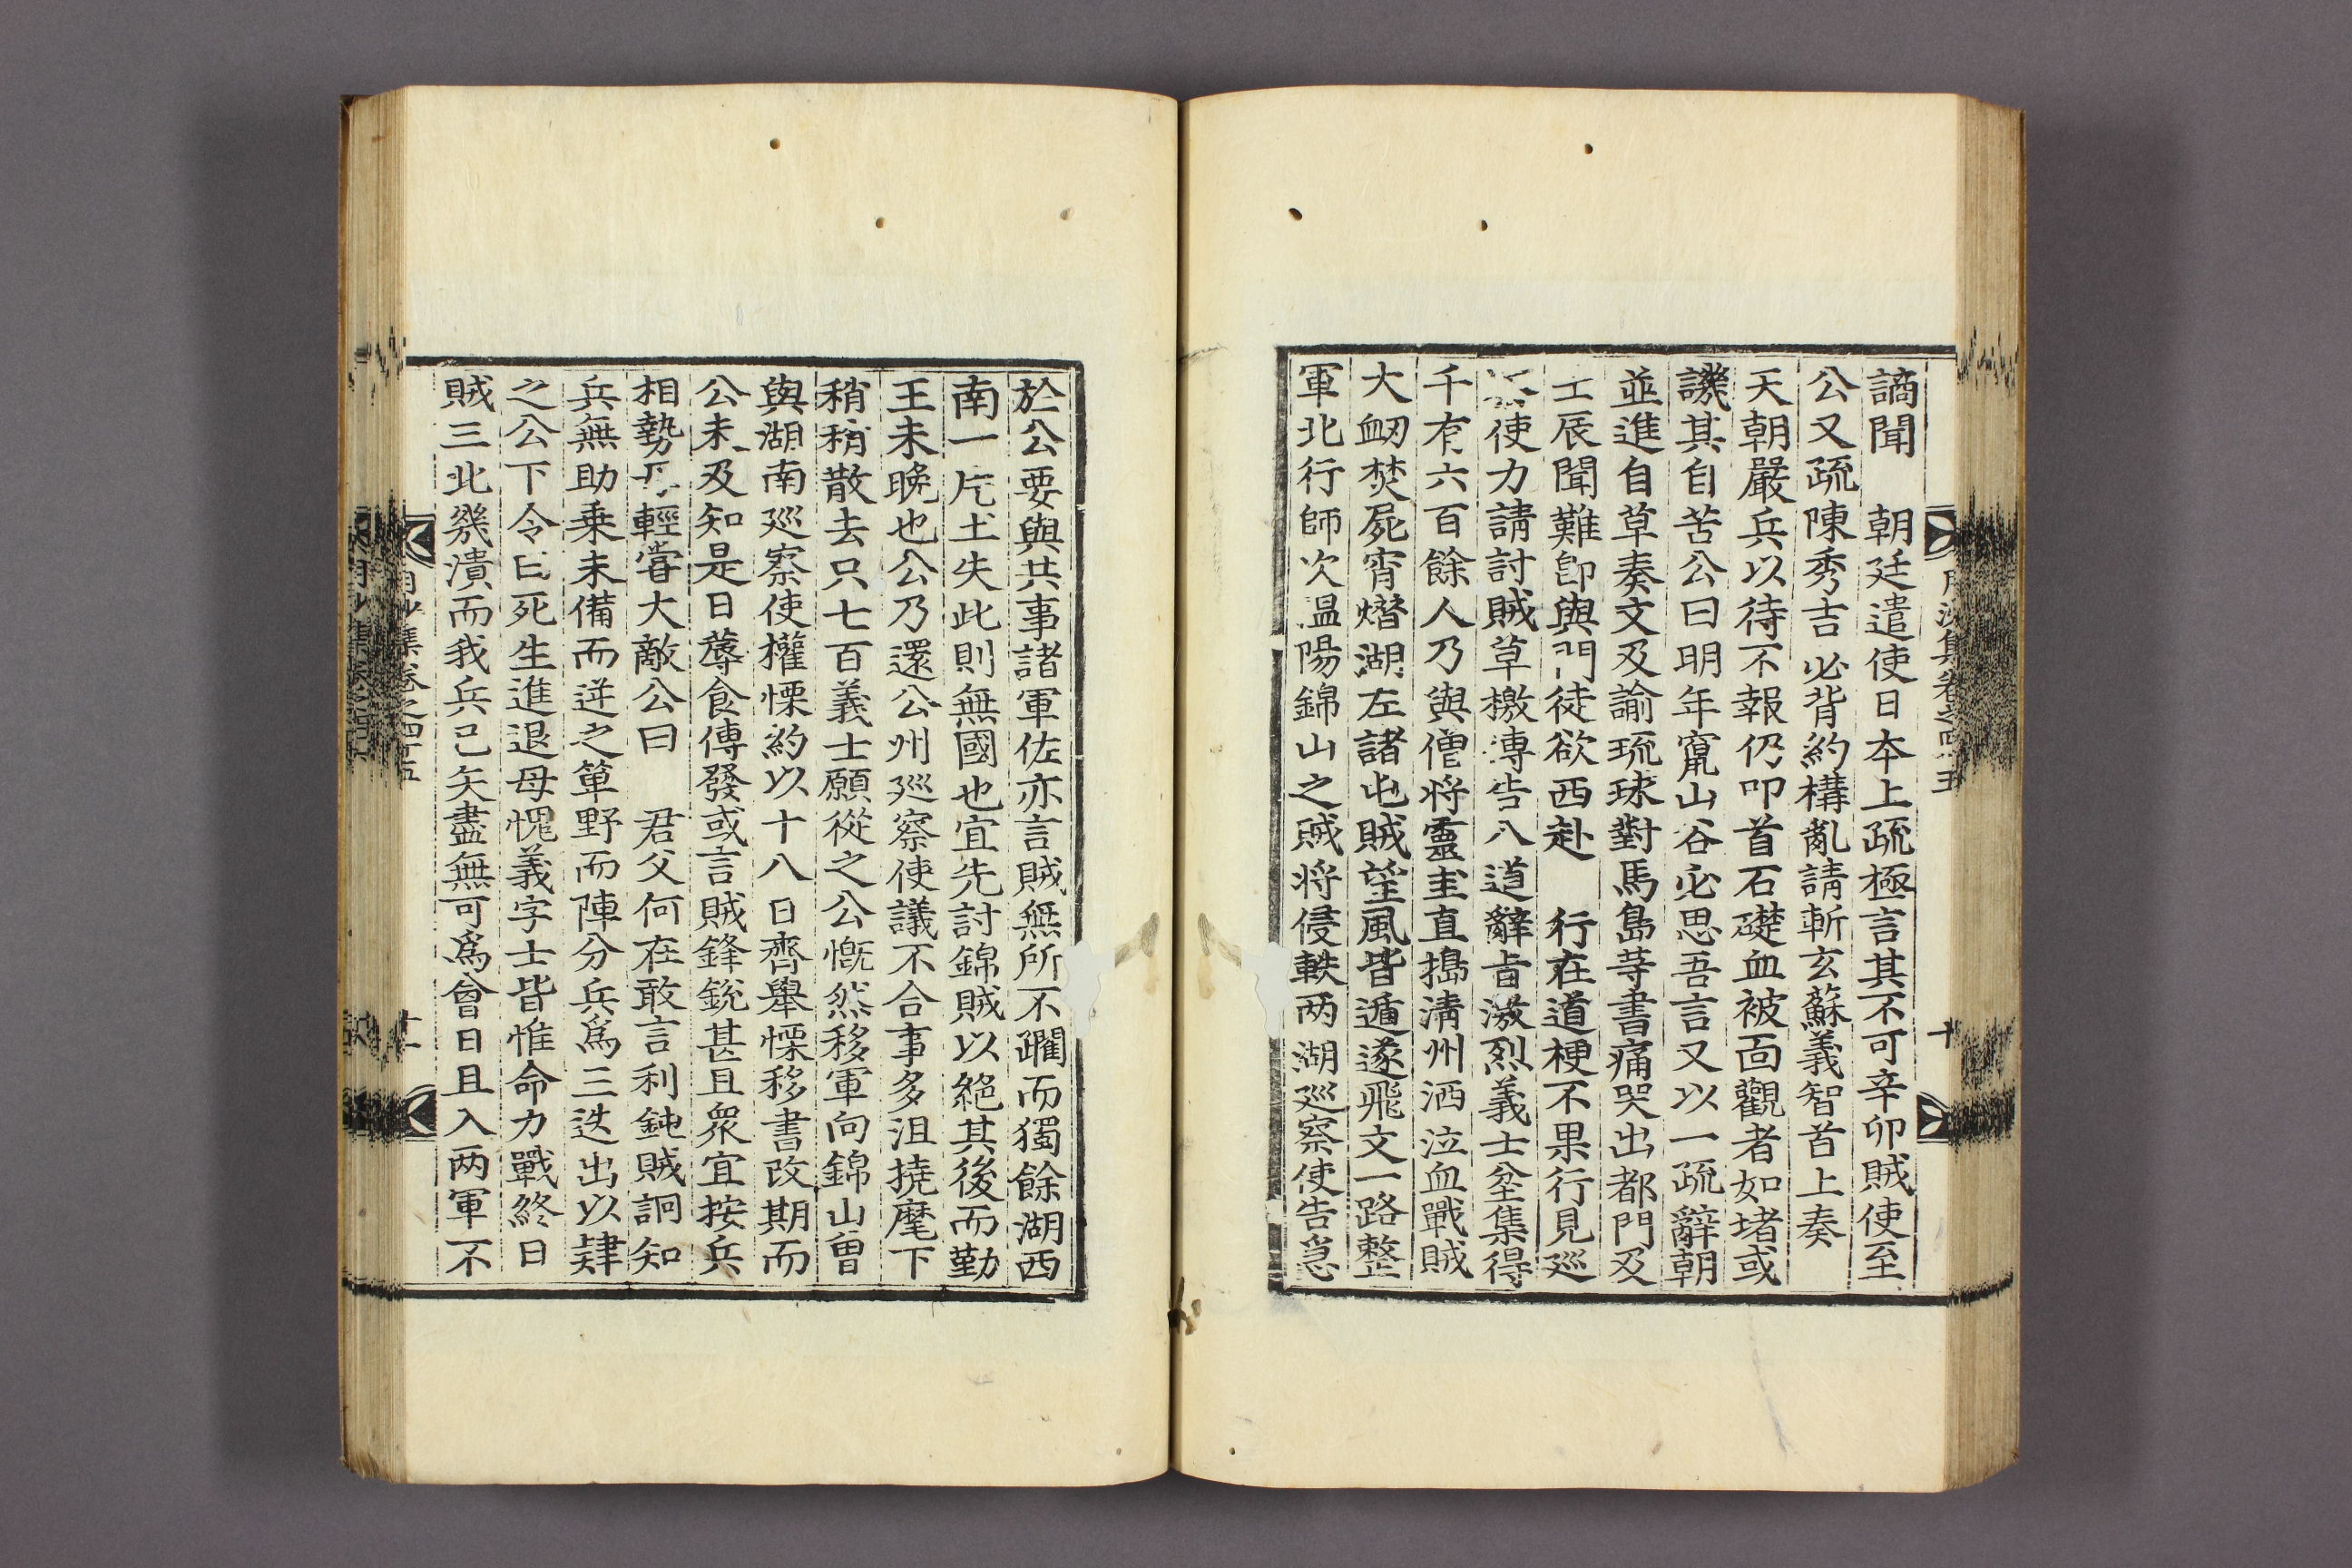 謫聞　朝廷遣使日本上疏極言其不可辛卯賊使至
公又疏陳秀吉必背約構亂請斬玄蘇義智首上奏
天朝嚴兵以待不報仍叩首石礎血被面觀者如堵或
譏其自苦公曰明年竄山谷必思吾言又以一疏辭朝
並進自草奏文及諭琉球對馬島等書痛哭出都門及
壬辰聞難卽與門徒欲西赴　行在道梗不果行見巡
使力請討賊草檄傳告八道辭旨激烈義士坌集得
千有六百餘人乃與僧将靈圭直搗淸州洒泣血戰賊
大衂焚屍宵熸湖左諸屯賊望風皆遁遂飛文一路整
軍北行師次温陽錦山之賊将侵軼两湖巡察使告急
於公要與共事諸軍佐亦言賊無所不躙而獨餘湖西
南一片土失此則無國也宜先討錦賊以絕其後而勤
王未晚也公乃還公州巡察使議不合事多沮撓麾下
稍稍散去只七百義士願從之公慨然移軍向錦山曾
與湖南巡察使權慄約以十八日齊舉慄移書改期而
公未及知是日蓐食傳發或言賊鋒銳甚且衆宜按兵
相勢輕嘗大敵公曰　君父何在敢言利鈍賊詗知
兵無助乗未備而迸之箪野而陣分兵爲三迭出以肄
之公下令曰死生進退毋愧義字士皆惟命力戰終日
賊三北幾潰而我兵已矢盡無可爲會日且入两軍不
集卷之四十五
十一
十